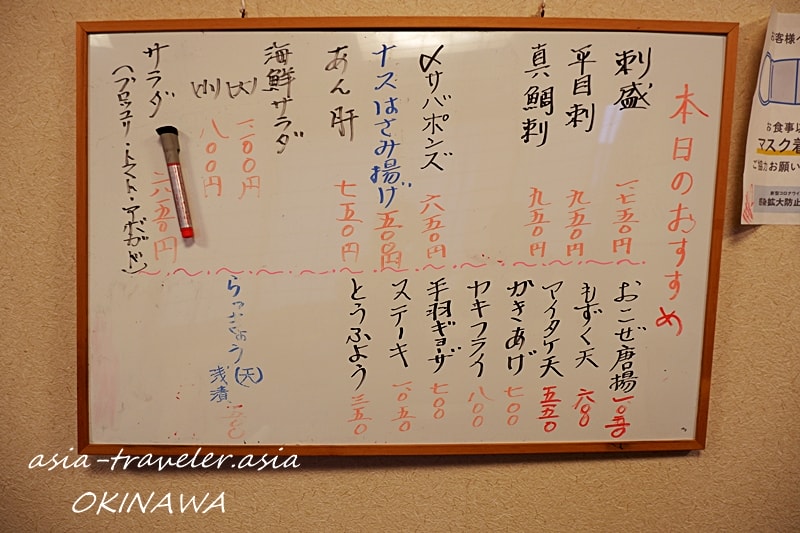 本日のおすすめ
刺盛 一、七五〇円
平目刺 九五〇円
真鯛刺 九五〇円
〆サバポンズ 六五〇円
ナスはさみ揚げ 五五〇円
あん肝 七五〇円
海鮮サラダ
(大) 一、一〇〇円
(小) 八〇〇円
サラダ 六五〇円
(ブロッコリ・トマト・アボガド)
おこぜ唐揚
もずく天 六〇〇
マイタケ天 五五〇
かきあげ 七〇〇
カキフライ 八〇〇
手羽ギョーザ 七〇〇
ステーキ 一、〇五〇
とうふよう 三五〇
らっきょう(天)
浅漬
お食事以
マスク着
ご協力お願い
拡大防止
asia-traveler.asia
OKINAWA